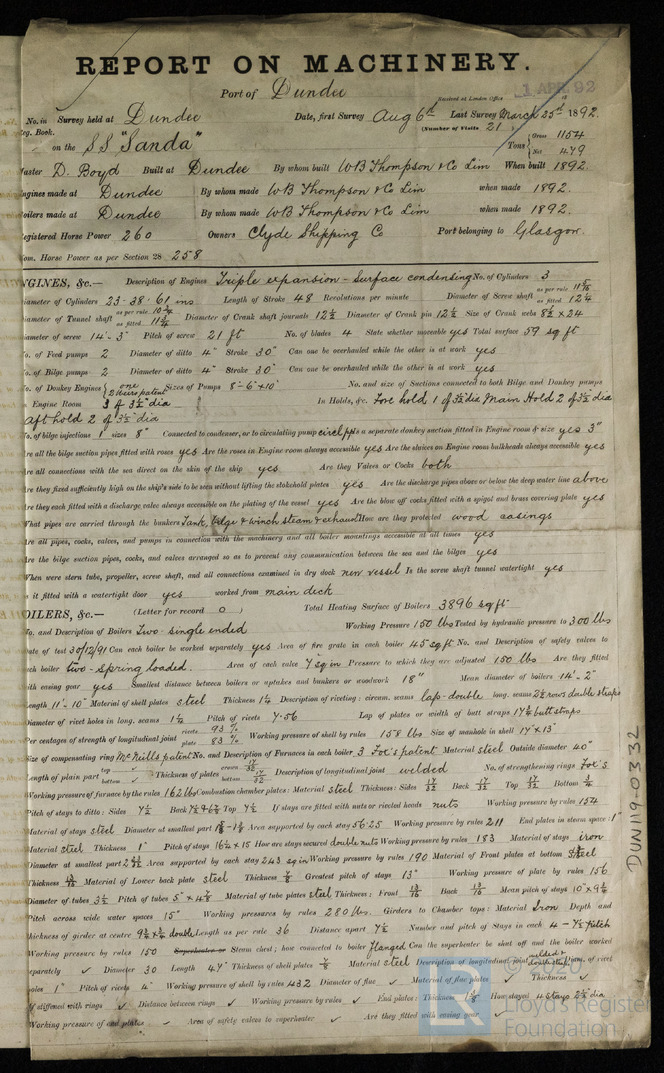 REPORT ON MACHINERY.
Port of Dundee
Received at London Office 1 APR 92
No. in Survey held at Dundee Date, first Survey Aug 6th Last Survey March 25th 1892.
Reg. Book. (Number of Visits 21)
on the SS "Sanda" Tons { Gross 1154 Net 479
Master D. Boyd Built at Dundee By whom built WB Thompson & Co Lim When built 1892.
Engines made at Dundee By whom made WB Thompson & Co Lim when made 1892.
Boilers made at Dundee By whom made WB Thompson & Co Lim when made 1892.
Registered Horse Power 260 Owners Clyde Shipping Co Port belonging to Glasgow.
Nom. Horse Power as per Section 28 258
ENGINES, &c.— Description of Engines Triple expansion - Surface condensing No. of Cylinders 3
Diameter of Cylinders 23-38-61 ins Length of Stroke 48 Revolutions per minute Diameter of Screw shaft as per rule as fitted 12¼
Diameter of Tunnel shaft as per rule 10¾ as fitted 11¾ Diameter of Crank shaft journals 12½ Diameter of Crank pin 12½ Size of Crank webs 8½ x 24
Diameter of screw 14-3" Pitch of screw 21 ft No. of blades 4 State whether moveable yes Total surface 59 sq ft
No. of Feed pumps 2 Diameter of ditto 4" Stroke 30" Can one be overhauled while the other is at work yes
No. of Bilge pumps 2 Diameter of ditto 4" Stroke 30" Can one be overhauled while the other is at work yes
No. of Donkey Engines { one 2 Weirs patent Sizes of Pumps 8"-6"x10" No. and size of Suctions connected to both Bilge and Donkey pumps
In Engine Room 3 of 3½" dia In Holds, &c. Fore hold 1 of 3½ dia Main Hold 2 of 3½ dia
aft hold 2 of 3½ dia
No. of bilge injections 1 sizes 8" Connected to condenser, or to circulating pump circ pp Is a separate donkey suction fitted in Engine room & size yes 3"
Are all the bilge suction pipes fitted with roses yes Are the roses in Engine room always accessible yes Are the sluices on Engine room bulkheads always accessible yes
Are all connections with the sea direct on the skin of the ship yes Are they Valves or Cocks both
Are they fixed sufficiently high on the ship's side to be seen without lifting the stokehold plates yes Are the discharge pipes above or below the deep water line above
Are they each fitted with a discharge valve always accessible on the plating of the vessel yes Are the blow off cocks fitted with a spigot and brass covering plate yes
What pipes are carried through the bunkers Tank, bilge & winch steam & exhaust How are they protected wood casings
Are all pipes, cocks, valves, and pumps in connection with the machinery and all boiler mountings accessible at all times yes
Are the bilge suction pipes, cocks, and valves arranged so as to prevent any communication between the sea and the bilges yes
When were stern tube, propeller, screw shaft, and all connections examined in dry dock new vessel Is the screw shaft tunnel watertight yes
Is it fitted with a watertight door yes worked from main deck
BOILERS, &c.— (Letter for record O) Total Heating Surface of Boilers 3896 sq ft
No. and Description of Boilers Two - single ended Working Pressure 150 lbs Tested by hydraulic pressure to 300 lbs
Date of test 30/12/91 Can each boiler be worked separately yes Area of fire grate in each boiler 45 sq ft No. and Description of safety valves to
each boiler two - spring loaded. Area of each valve 7 sq in Pressure to which they are adjusted 150 lbs Are they fitted
with easing gear yes Smallest distance between boilers or uptakes and bunkers or woodwork 18" Mean diameter of boilers 14'-2"
Length 11'-10" Material of shell plates steel Thickness 1¼ Description of riveting: circum. seams lap-double long. seams double straps
Diameter of rivet holes in long. seams 1½ Pitch of rivets 7.56 Lap of plates or width of butt straps 17¾ butt straps
Per centages of strength of longitudinal joint rivets 93 % plate 83 % Working pressure of shell by rules 158 lbs Size of manhole in shell 17" x 13"
Size of compensating ring McNeills patent No. and Description of Furnaces in each boiler 3 Fox's patent Material steel Outside diameter 40"
Length of plain part top bottom ✓ Thickness of plates crown bottom 17/32 Description of longitudinal joint welded No. of strengthening rings Fox's
Working pressure of furnace by the rules 162 lbs Combustion chamber plates: Material steel Thickness: Sides 17/32 Back 17/32 Top 17/32 Bottom ¾
Pitch of stays to ditto: Sides 7½ Back Top 7½ If stays are fitted with nuts or riveted heads nuts Working pressure by rules 154
Material of stays steel Diameter at smallest part Area supported by each stay 56.25 Working pressure by rules 211 End plates in steam space: 1"
Material steel Thickness 1" Pitch of stays 16½ x 15 How are stays secured double nuts Working pressure by rules 183 Material of stays iron
Diameter at smallest part Area supported by each stay 243 sq in Working pressure by rules 190 Material of Front plates at bottom steel
Thickness 13/16 Material of Lower back plate steel Thickness ⅞ Greatest pitch of stays 13" Working pressure of plate by rules 156
Diameter of tubes 3½ Pitch of tubes 5" x 4⅞ Material of tube plates steel Thickness: Front 13/16 Back 13/16 Mean pitch of stays 10" x 9¾
Pitch across wide water spaces 15" Working pressures by rules 280 lbs. Girders to Chamber tops: Material Iron Depth and
thickness of girder at centre double Length as per rule 36 Distance apart 7½ Number and pitch of Stays in each 4 - 7½ pitch
Working pressure by rules 150 Superheater or Steam chest; how connected to boiler flanged Can the superheater be shut off and the boiler worked
separately ✓ Diameter 30 Length 47" Thickness of shell plates ⅞ Material steel Description of longitudinal joint welded & double strap Diam. of rivet
holes 1" Pitch of rivets 4" Working pressure of shell by rules 432 Diameter of flue ✓ Material of flue plates ✓ Thickness ✓
If stiffened with rings ✓ Distance between rings ✓ Working pressure by rules ✓ End plates: Thickness 1⅛ How stayed 4 stays 2½ dia
Working pressure of end plates ✓ Area of safety valves to superheater ✓ Are they fitted with easing gear ✓
DUN119-0332
© 2020
Lloyd's Register
Foundation